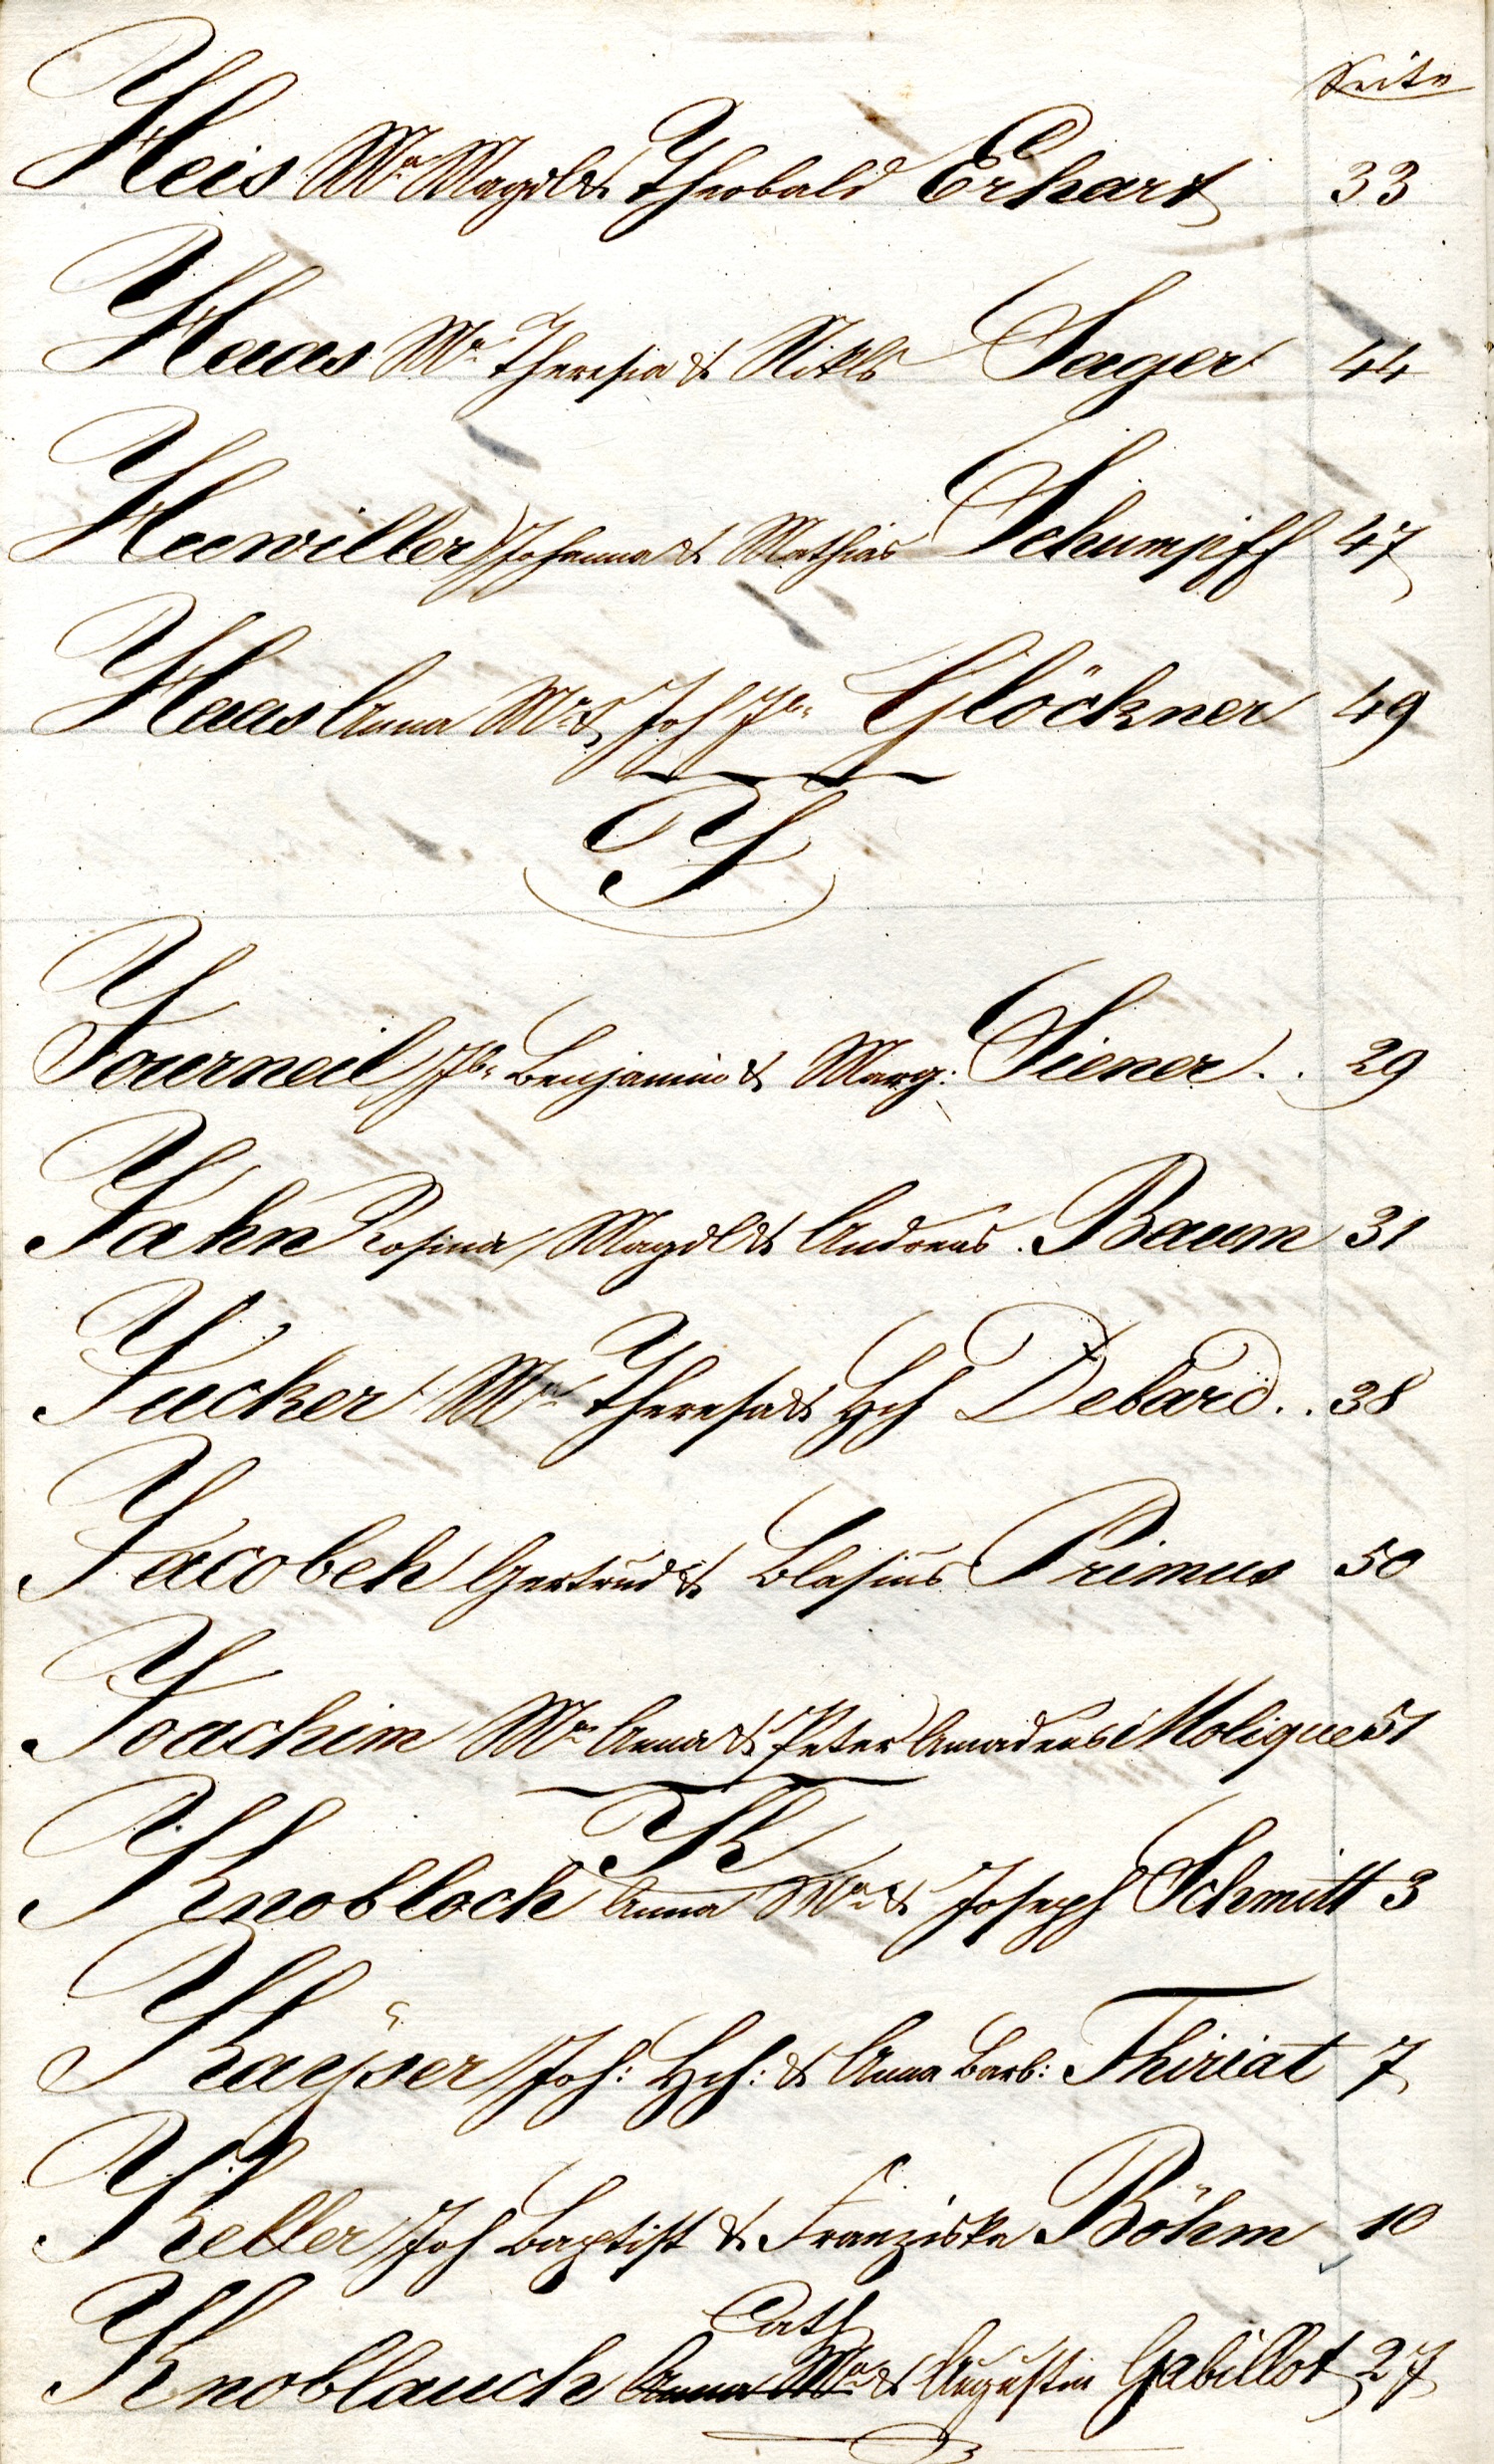 Seite
Heis Ma Magdl & Theobald Erhart 33
Haas Ma Theresia & Nikls Sager 44
Huwiller Johanna & Mathias Schumpff 47
Haas Anna Ma & Joh Jb: Glöckner 49
J
Journeil Jb: Benjamin & Marg: Siener .. 29
Jahn Rosina Magdl & Andreas . Baum 31
Jucker Ma Theresa & Hch Debard .. 38
Jacobeh Gertrud & Blasius Primus 50
Joachim Ma Anna & Peter Amadeus Molique 51
K
Knobloch Anna Ma & Joseph Schmitt 3
Kaÿser Joh: Hch: & Anna Barb: Thiriat 7
Keller Joh Baptist & Franziska Böhm 10
Cath
Knoblauch Anna Ma & Augustin Gabillot 27